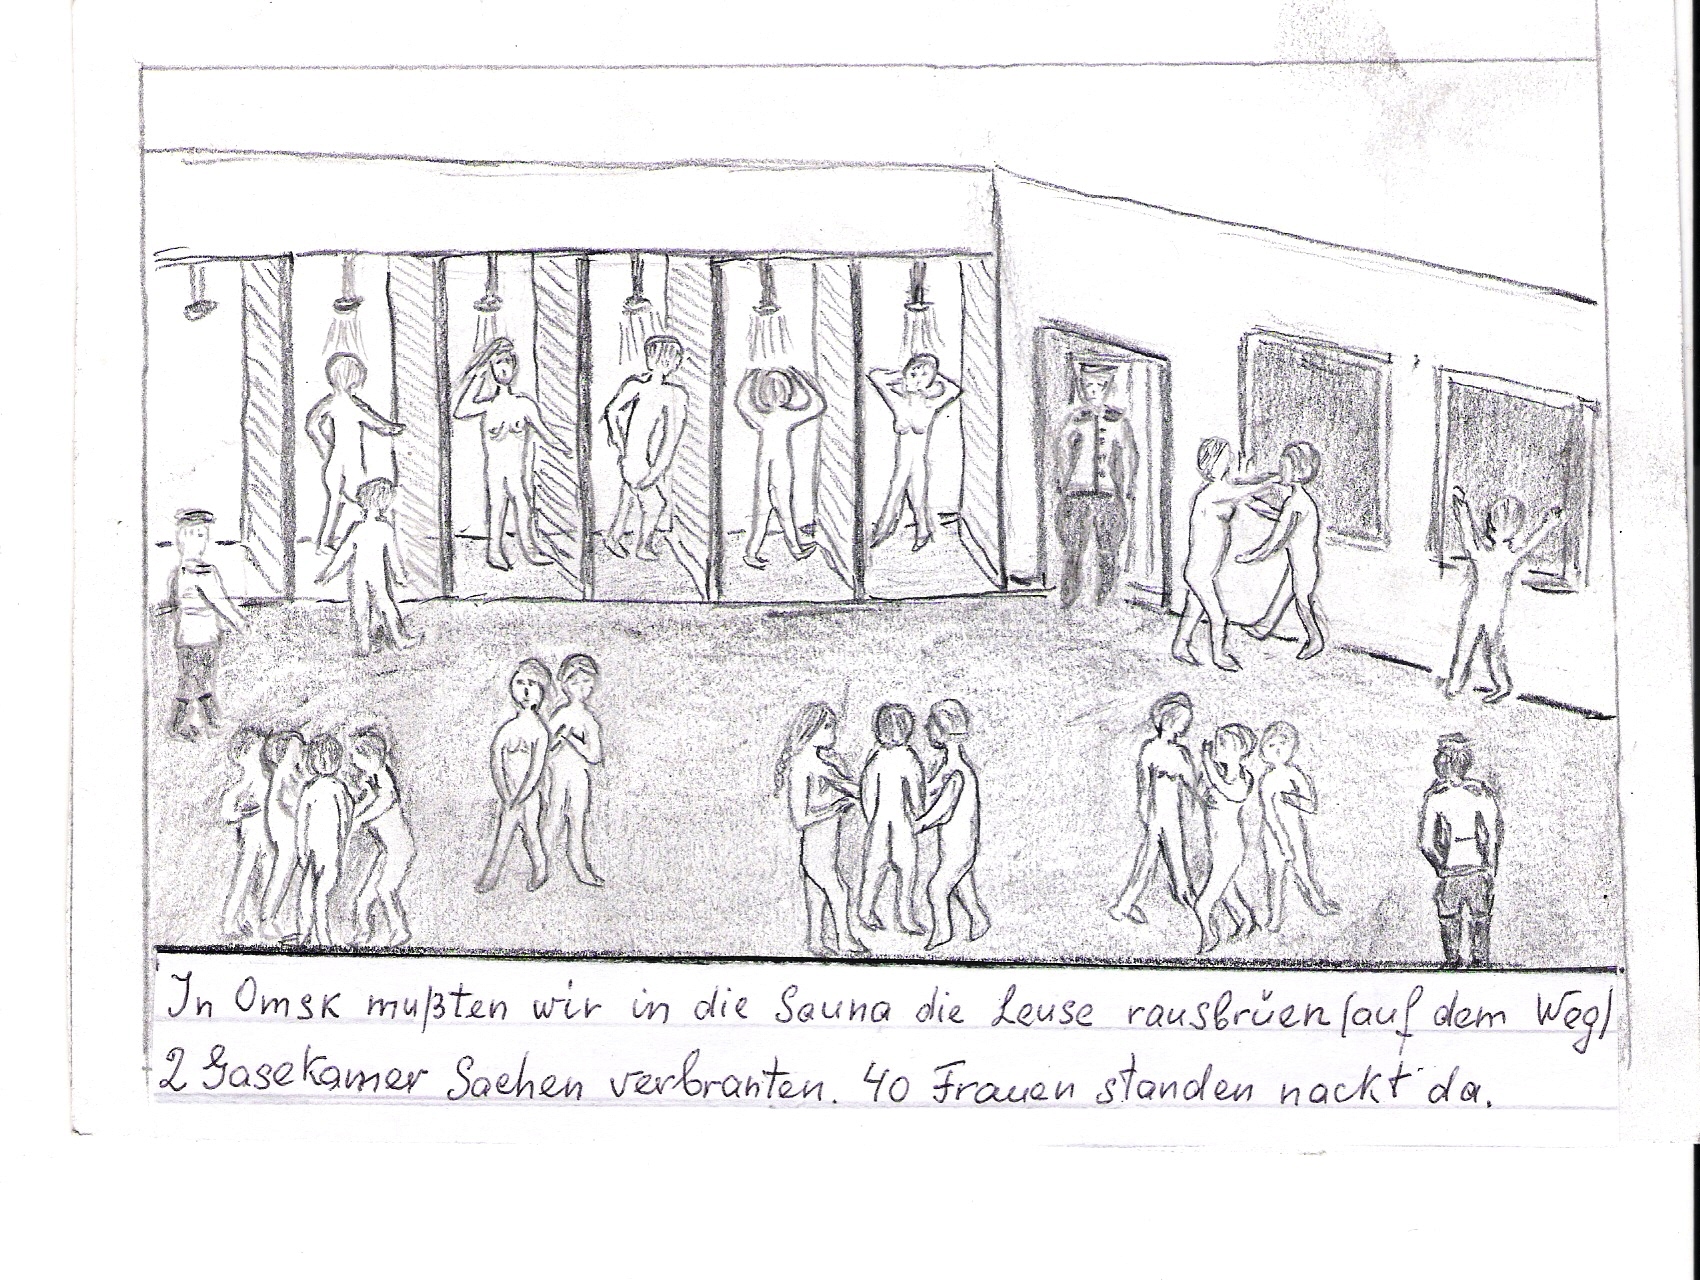 In Omsk mußten wir in die Sauna die Leuse rausbrüen (auf dem Weg)
2 Gasekamer Sachen verbranten. 40 Frauen standen nackt da.